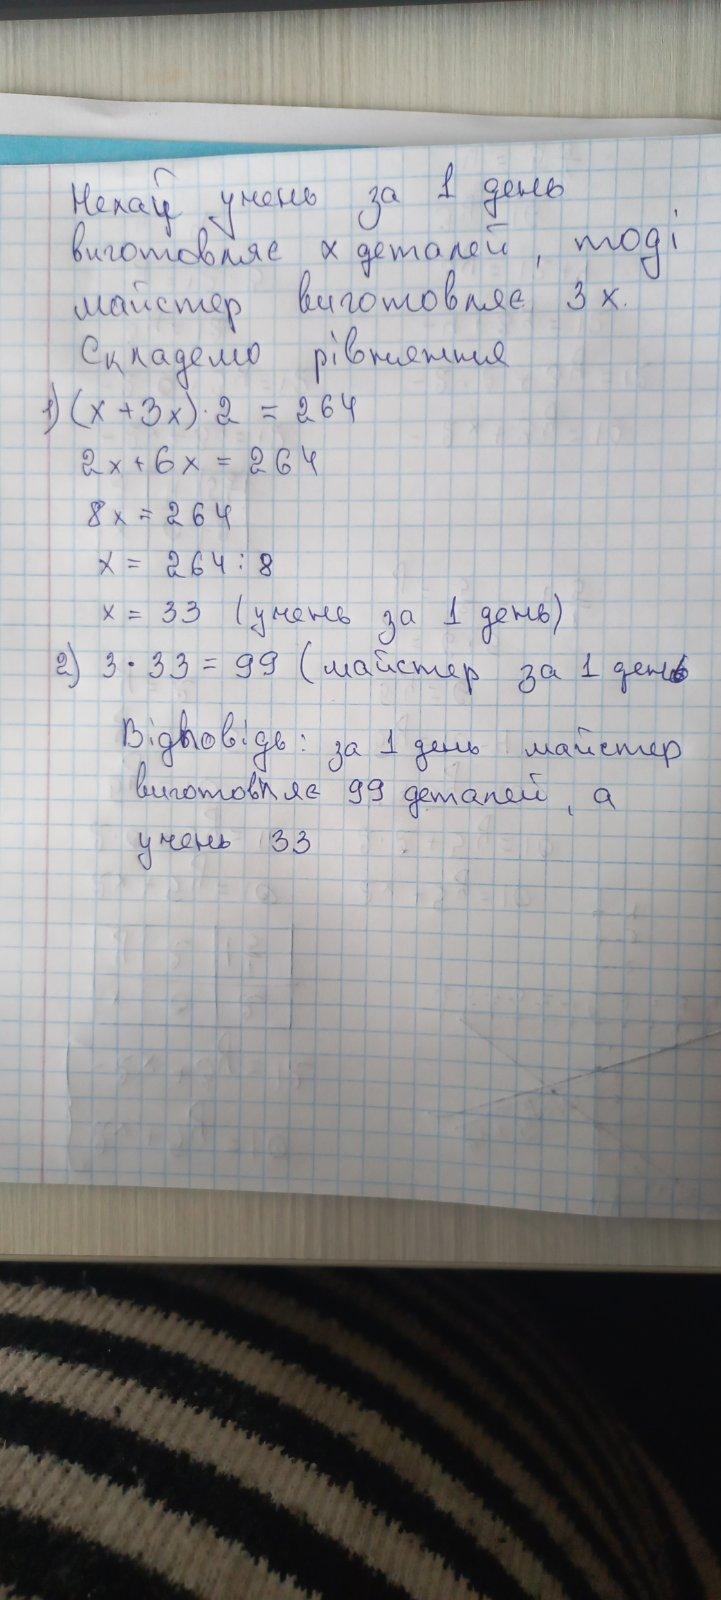 Нехай учень за 1 день
виготовляє x деталей, тоді
майстер виготовляє 3x.
Складемо рівняння
1) (x + 3x) · 2 = 264
2x + 6x = 264
8x = 264
x = 264 : 8
x = 33 (учень за 1 день)
2) 3 · 33 = 99 (майстер за 1 день
Відповідь: за 1 день майстер
виготовляє 99 деталей, а
учень 33